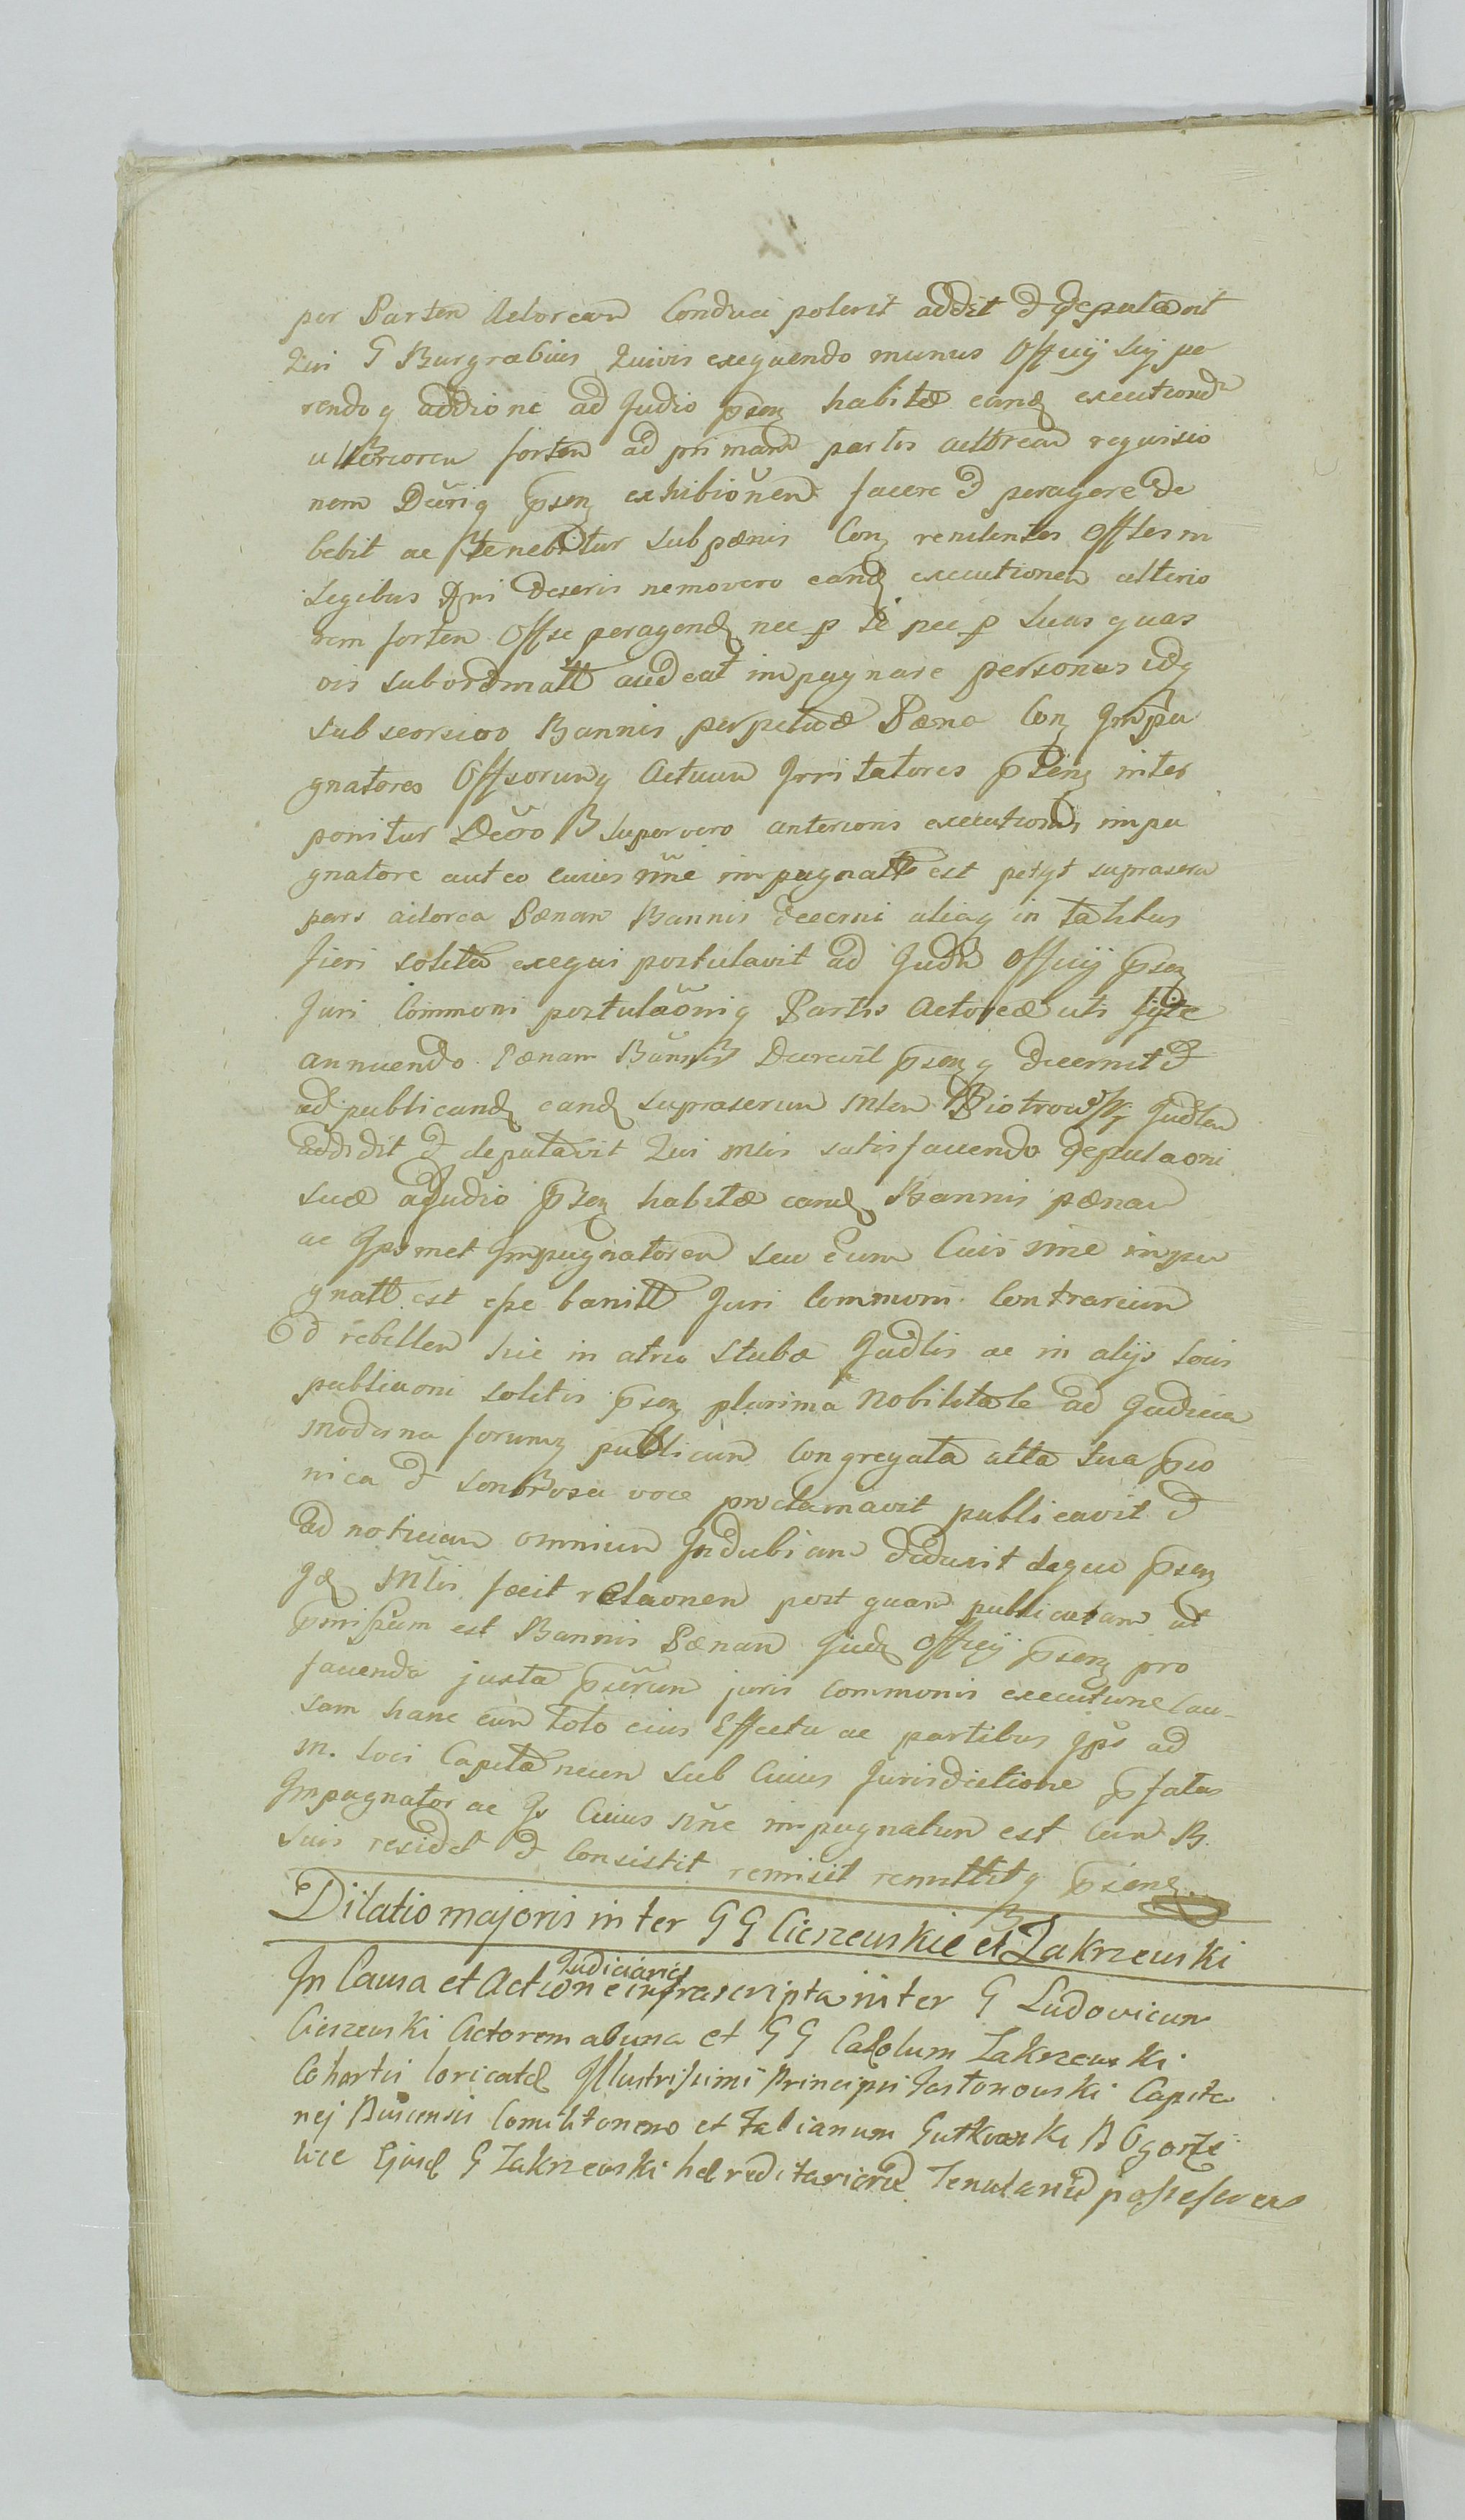 per Partem Actoream Conduci poterit addit et deputavit
Qui G Burgrabius Quivis exequendo munus Officij sui pa
rendoq addione ad Judio psenq habitæ eandq executionem
ulteriorem fortem ad primam partis actoream requisio
nem Decriq psenq exhibionem facere et peragere de
bebit ac tenebitur sub pænis Conq renitentes Offles in
Legibus Rni deseris nemovero eandq executionem ulterio
rem fortem Offse peragendq nec p se nec p suas quas
vis subordinatt audeat impugnare personas idq
sub seorsivo Bannis perpetuæ Pæna Conq Impu
gnatores Offsorumq Actuum Irritatores psenq inter
ponitur Decro super vero anterioris executionis impu
gnatore aut eo cuius nne impugnatt est petyt suprascra
pars actorea Pænam Bannis decerni aliaq in talibus
fieri solita exequi postulavit ad Judm Officij psenq
Juri Communi postulaoniq Partis Actoreæ uti
annuendo Pænam Bannis Decrevit psenq decernit et
ad publicandq eandq suprascrum Mlem Piotrowski Judlem
addidit et deputavit Qui Mlis satisfaciendo deputaoni
suæ a Judio psenq habitæ eandq Bannis pænam
ac Ipsmet Impugnatorem seu eum Cuis nne impu
gnatt est esse banitt Juri Communi Contrarium
et rebellem hic in atrio stubæ Judlis ac in alijs locis
publicaoni solitis psenq plurima Nobilitate ad Judicia
moderna forumq publicum Congregata alta sua pco
nica et sonorosa voce proclamavit publicavit et
ad noticiam omnium Indubiam deduxit deque psenq
Idq Mlis fecit relaonem post quam publicatam ut
pmissum est Bannis Pænam Judq Officij psenq pro
facienda juxta pscrum juris Communis executione Cau-
sam hanc cum toto eius Effectu ac partibus Ips ad
M. Loci Capitaneum sub Cuius Jurisdictione pfatus
Impugnator ac Is Cuius nne impugnatum est cum B.
suis residet et Consistit remisit remittitq psenq
Dilatio majoris inter GG Cieszewskie et Zakrzewski
In Causa et Actione Judiciaria infrascripta inter G Ludovicum
Cieszewski Actorem ab una et GG Carolum Zakrzewski
Cohortis loricatæ Illustrissimi Principis Jastonowski Capita
nej Buscensis Comilitonem et Fabianum Gutkowski B Ogorze
lice Ejusd G Zakrzewski hæreditariorum Tenutarium possessorem